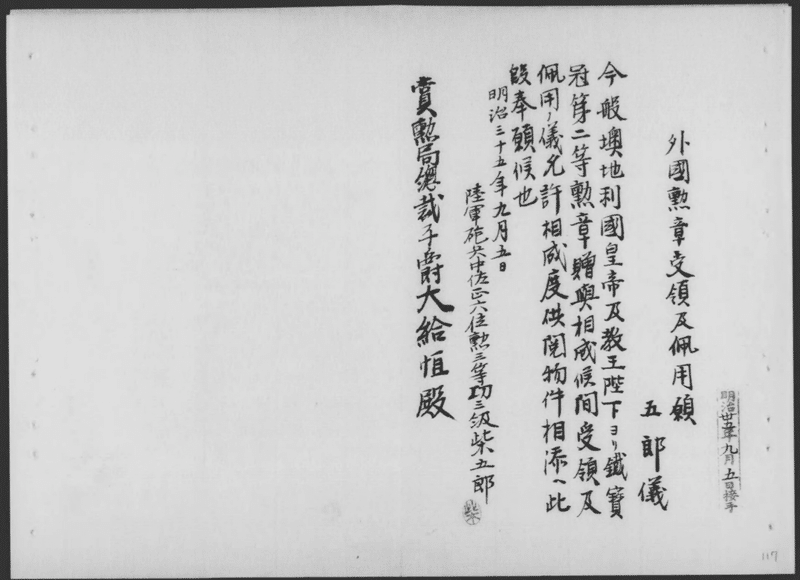 明治卅五年九月五日接手
外國勲章受領及佩用願
五郎儀
今般墺地利國皇帝及教王陛下ヨリ鐵寶
冠第二等勲章贈與相成候間受領及
佩用ノ儀允許相成度供閲物件相添ヘ此
段奉願候也
明治三十五年九月五日
陸軍砲兵中佐正六位勲三等功三級柴五郎
柴
賞勲局總裁子爵大給恒殿
117